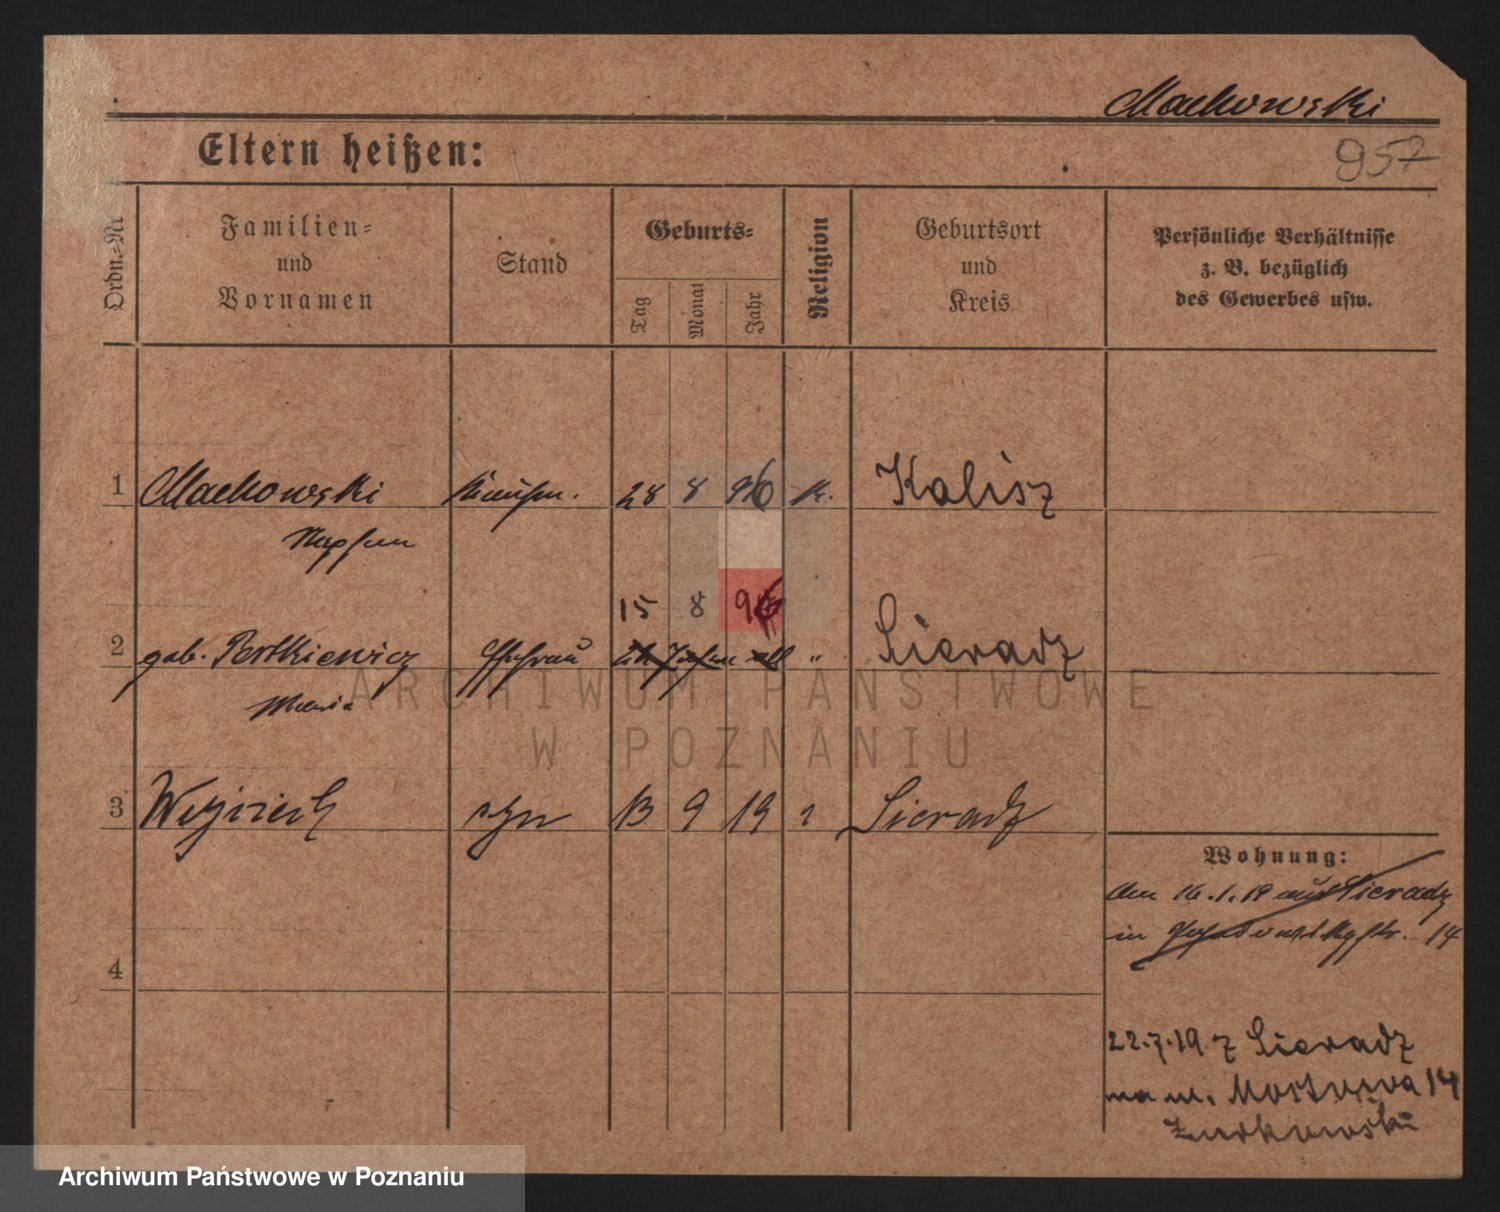 Mackowski
957
Eltern heißen:
Ordn.=Nr
Familien=
und
Vornamen
Stand
Geburts=
Tag
Monat
Jahr
Religion
Geburtsort
und
Kreis
Persönliche Verhältnisse
z. B. bezüglich
des Gewerbes usw.
1 Mackowski Kaufm. 28 8 96 k. Kalisz
15 8 96
2 geb. Partkiewicz Ehefrau " Sieradz
Maria
3 Wojciech syn 13 9 19 Sieradz
Wohnung:
den 16.1.19 aus Sieradz
in 14
4
22.7.19 z Sieradz
na ul. Mostowa 14
Żurkowski
ARCHIWUM PAŃSTWOWE
W POZNANIU
Archiwum Państwowe w Poznaniu